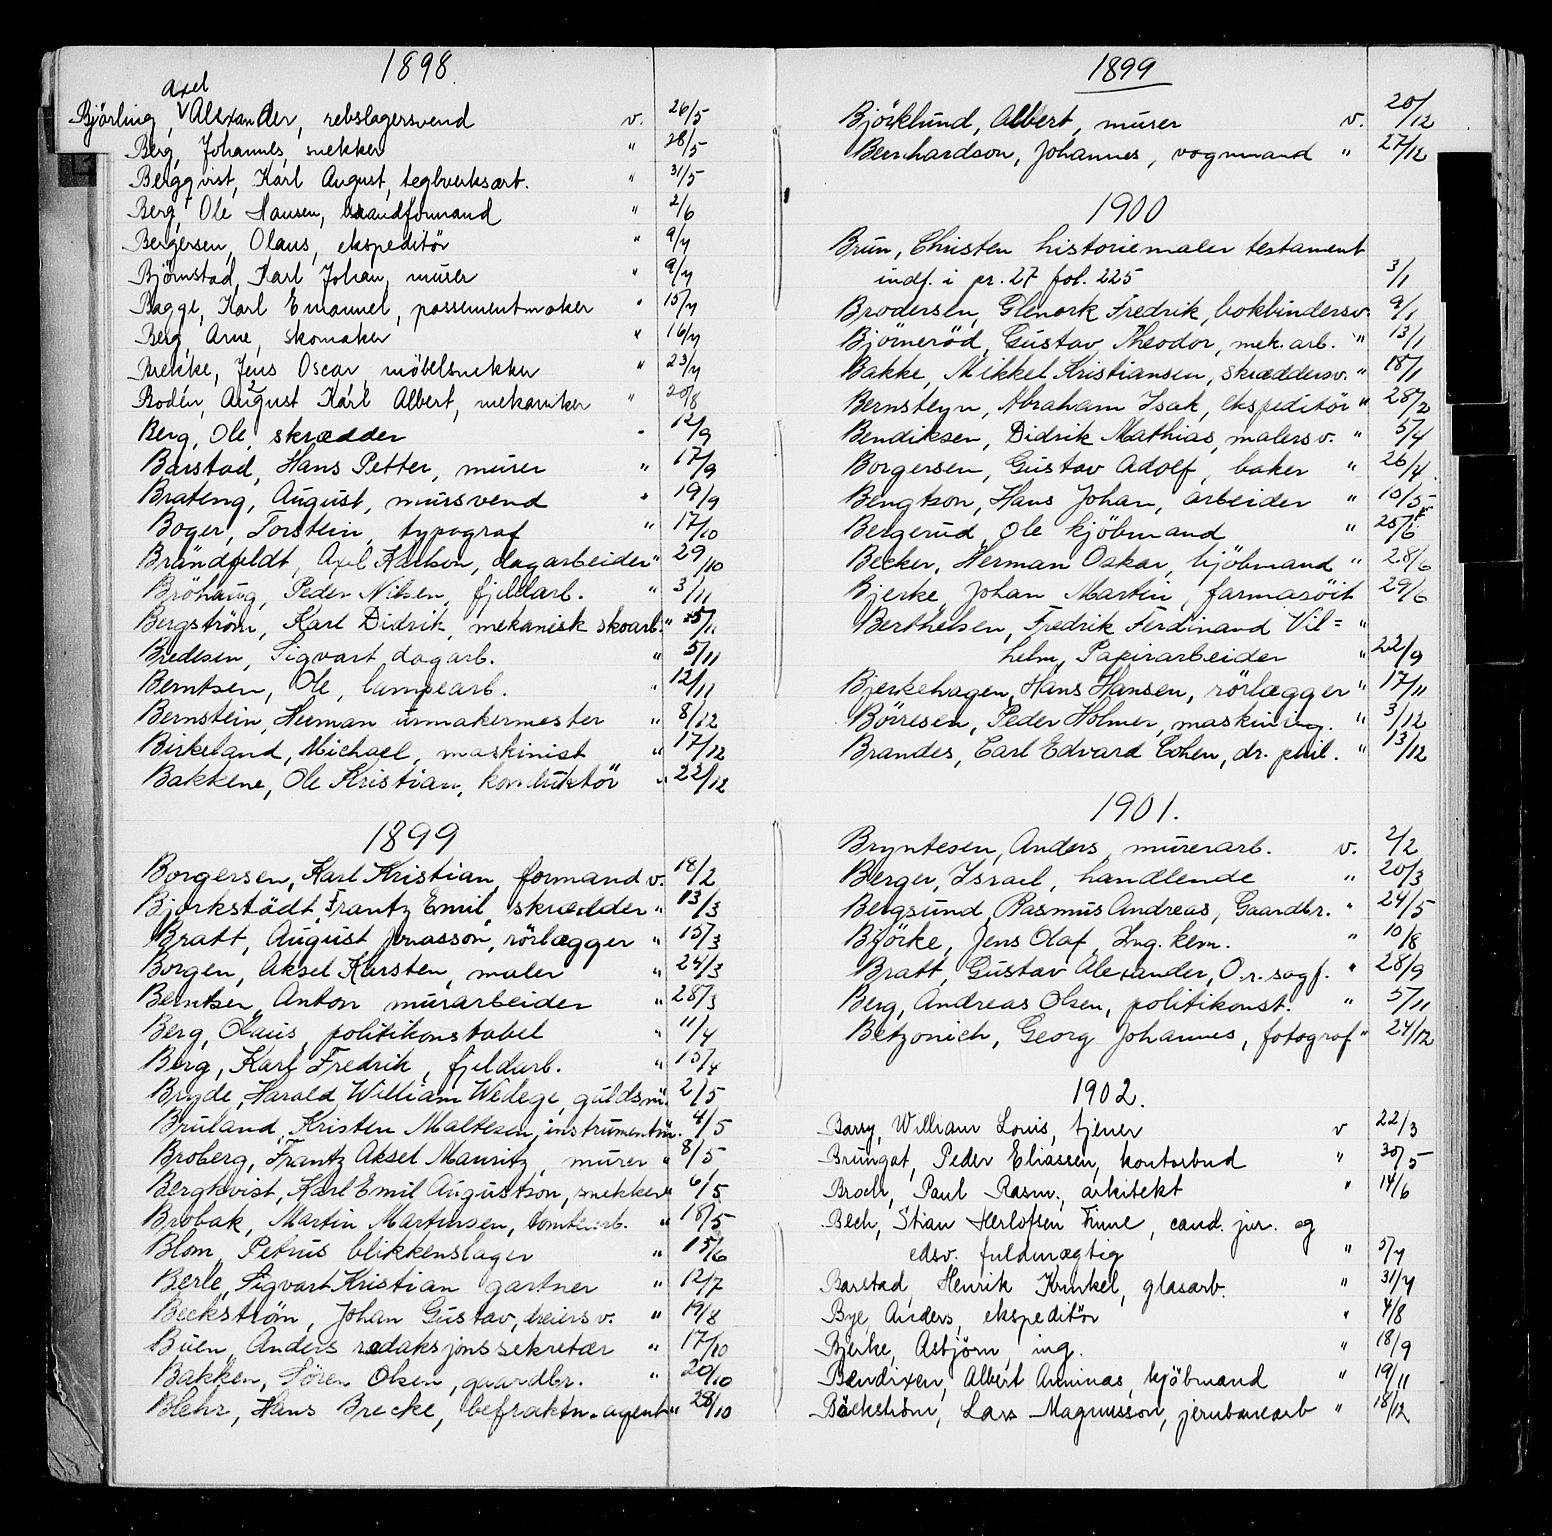 1898.
Axel
Bjørling, Alexander, rebslagersvend v. 26/5
Berg, Johannes, snekker " 28/5
Bergqvist, Karl August, teglverksarb. " 31/5
Berg, Ole Hansen, brandformand " 2/6
Bergersen, Olaus, ekspeditør " 9/7
Bjørnstad, Karl Johan, murer " 9/7
Bagge, Karl Emanuel, possementmaker " 15/7
Berg, Arne, skomaker " 16/7
Brekke, Jens Oscar, möbelsnekker " 23/7
Bodén, August Karl Albert, mekaniker " 20/8
Berg, Ole, skrædder " 12/9
Barstad, Hans Petter, murer " 17/9
Brateng, August, mursvend " 19/9
Boger, Torstein, typograf " 17/10
Brändfeldt, Axel Karlson, dagarbeider " 29/10
Bröhaug, Peder Nilsen, fjeldarb. " 3/11
Bergström, Karl Didrik, mekanisk skoarb. " 5/11
Bredesen, Sigvart, dagarb. " 5/11
Berntsen, Ole, lampearb. " 12/11
Bernstein, Herman urmakermester " 8/12
Birkeland, Michael, maskinist " 17/12
Bakkene, Ole Kristian, konduktör " 22/12
1899
Borgersen, Karl Kristian, formand v. 18/2
Bjorkstödt, Frantz Emil, skrædder " 13/3
Bratt, August Jonasson, rörlægger " 15/3
Borgen, Aksel Karsten, maler " 24/3
Berntsen, Anton murarbeider " 28/3
Berg, Olaus, politikonstabel " 11/4
Berg, Karl Fredrik, fjeldarb. " 15/4
Bryde, Harald William Wedege, guldsm. 2/5
Bruland, Kristen Maltesen, instrumentm. 4/5
Broberg, Frantz Aksel Mauritz, murer " 8/5
Bergkvist, Karl Emil Augustson, snekker " 6/5
Brobak, Martin Martinsen, tomtearb. " 18/5
Blom, Petrus blikkenslager " 15/6
Berle, Sigvart Kristian gartner " 12/7
Beckström, Johan Gustav, dreiersv. " 19/8
Buen, Anders redaksjonssekretær " 17/10
Bakken, Sören Olsen, gaardbr. " 20/10
Blehr, Hans Brecke, befraktn.agent " 28/10
1899
Björklund, Albert, murer v. 20/12
Bernhardson, Johannes, vognmand " 27/12
1900
Brun, Christen historiemaler testament
indf. i pr. 27 fol. 225 3/1
Brodersen, Glenork Fredrik, bokbindersv. 9/1
Bjørnerød, Gustav Theodor, mek. arb. " 13/1
Bakke, Mikkel Kristiansen, skræddersv. " 18/1
Bernsteyn, Abraham Isak, ekspeditör " 28/2
Bendiksen, Didrik Mathias, malersv. " 5/4
Borgersen, Gustav Adolf, baker " 26/4
Bengtson, Hans Johan, arbeider " 10/5
Bergerud, Ole kjöbmand " 25/6
Becker, Herman Oskar, kjöbmand " 28/6
Bjerke, Johan Martin, farmasöit 29/6
Berthelsen, Fredrik Ferdinand Vil= "
helm, Papirarbeider " 22/9
Bjerkehagen, Hans Hansen, rörlægger " 17/11
Börresen, Peder Holmer, maskining. " 3/12
Brandes, Carl Edvard Cohen, dr. phil. " 13/12
1901.
Bryntesen, Anders, murerarb. v. 2/2
Berger, Israel, handlende " 20/3
Bergsund, Rasmus Andreas, Gaardbr. " 24/5
Björke, Jens Olaf, Ing. kem. " 10/8
Bratt, Gustav Alexander, O.r. sagf. " 28/9
Berg, Andreas Olsen, politikonst. " 5/11
Betzonich, Georg Johannes, fotograf " 24/12
1902.
Barry, William Louis, tjener v 22/3
Brungot, Peder Eliassen, kontorbud " 30/5
Broch, Paul Rasm., arkitekt " 14/6
Bech, Stian Herlofsen Finne, cand. jur. og
edsv. fuldmægtig " 5/7
Barstad, Henrik Kunkel, glasarb. " 31/7
Bye, Anders, ekspeditör " 4/8
Bjerke, Asbjörn, ing. " 18/9
Bendixen, Albert Arminas, kjöbmand " 19/11
Bäckström, Lars Magnusson, jernbanearb " 18/12